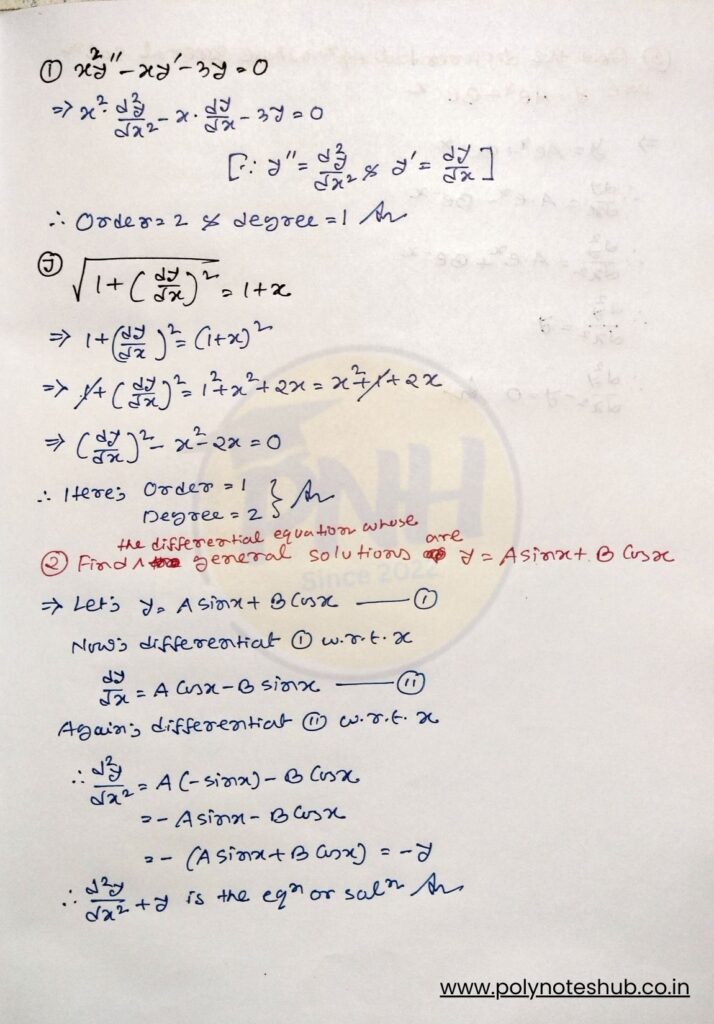 ① x²y'' - xy' - 3y = 0
⇒ x² · d²y/dx² - x · dy/dx - 3y = 0
[∵ y'' = d²y/dx² & y' = dy/dx]
∴ Order = 2 & degree = 1 Ans
ⓙ √(1 + (dy/dx)²) = 1 + x
⇒ 1 + (dy/dx)² = (1+x)²
⇒ 1 + (dy/dx)² = 1² + x² + 2x = x² + 1 + 2x
⇒ (dy/dx)² - x² - 2x = 0
∴ Here; Order = 1
Degree = 2 } Ans
② Find the differential equation whose general solutions are y = A sinx + B Cosx
⇒ Let; y = A sinx + B Cosx —— ①
Now; differentiat ① w.r.t. x
dy/dx = A Cosx - B sinx —— ⑪
Again; differentiat ⑪ w.r.t. x
∴ d²y/dx² = A(-sinx) - B Cosx
= - A sinx - B Cosx
= - (A sinx + B Cosx) = -y
∴ d²y/dx² + y is the eqⁿ or solⁿ Ans
PNH
Since 2022
www.polynoteshub.co.in